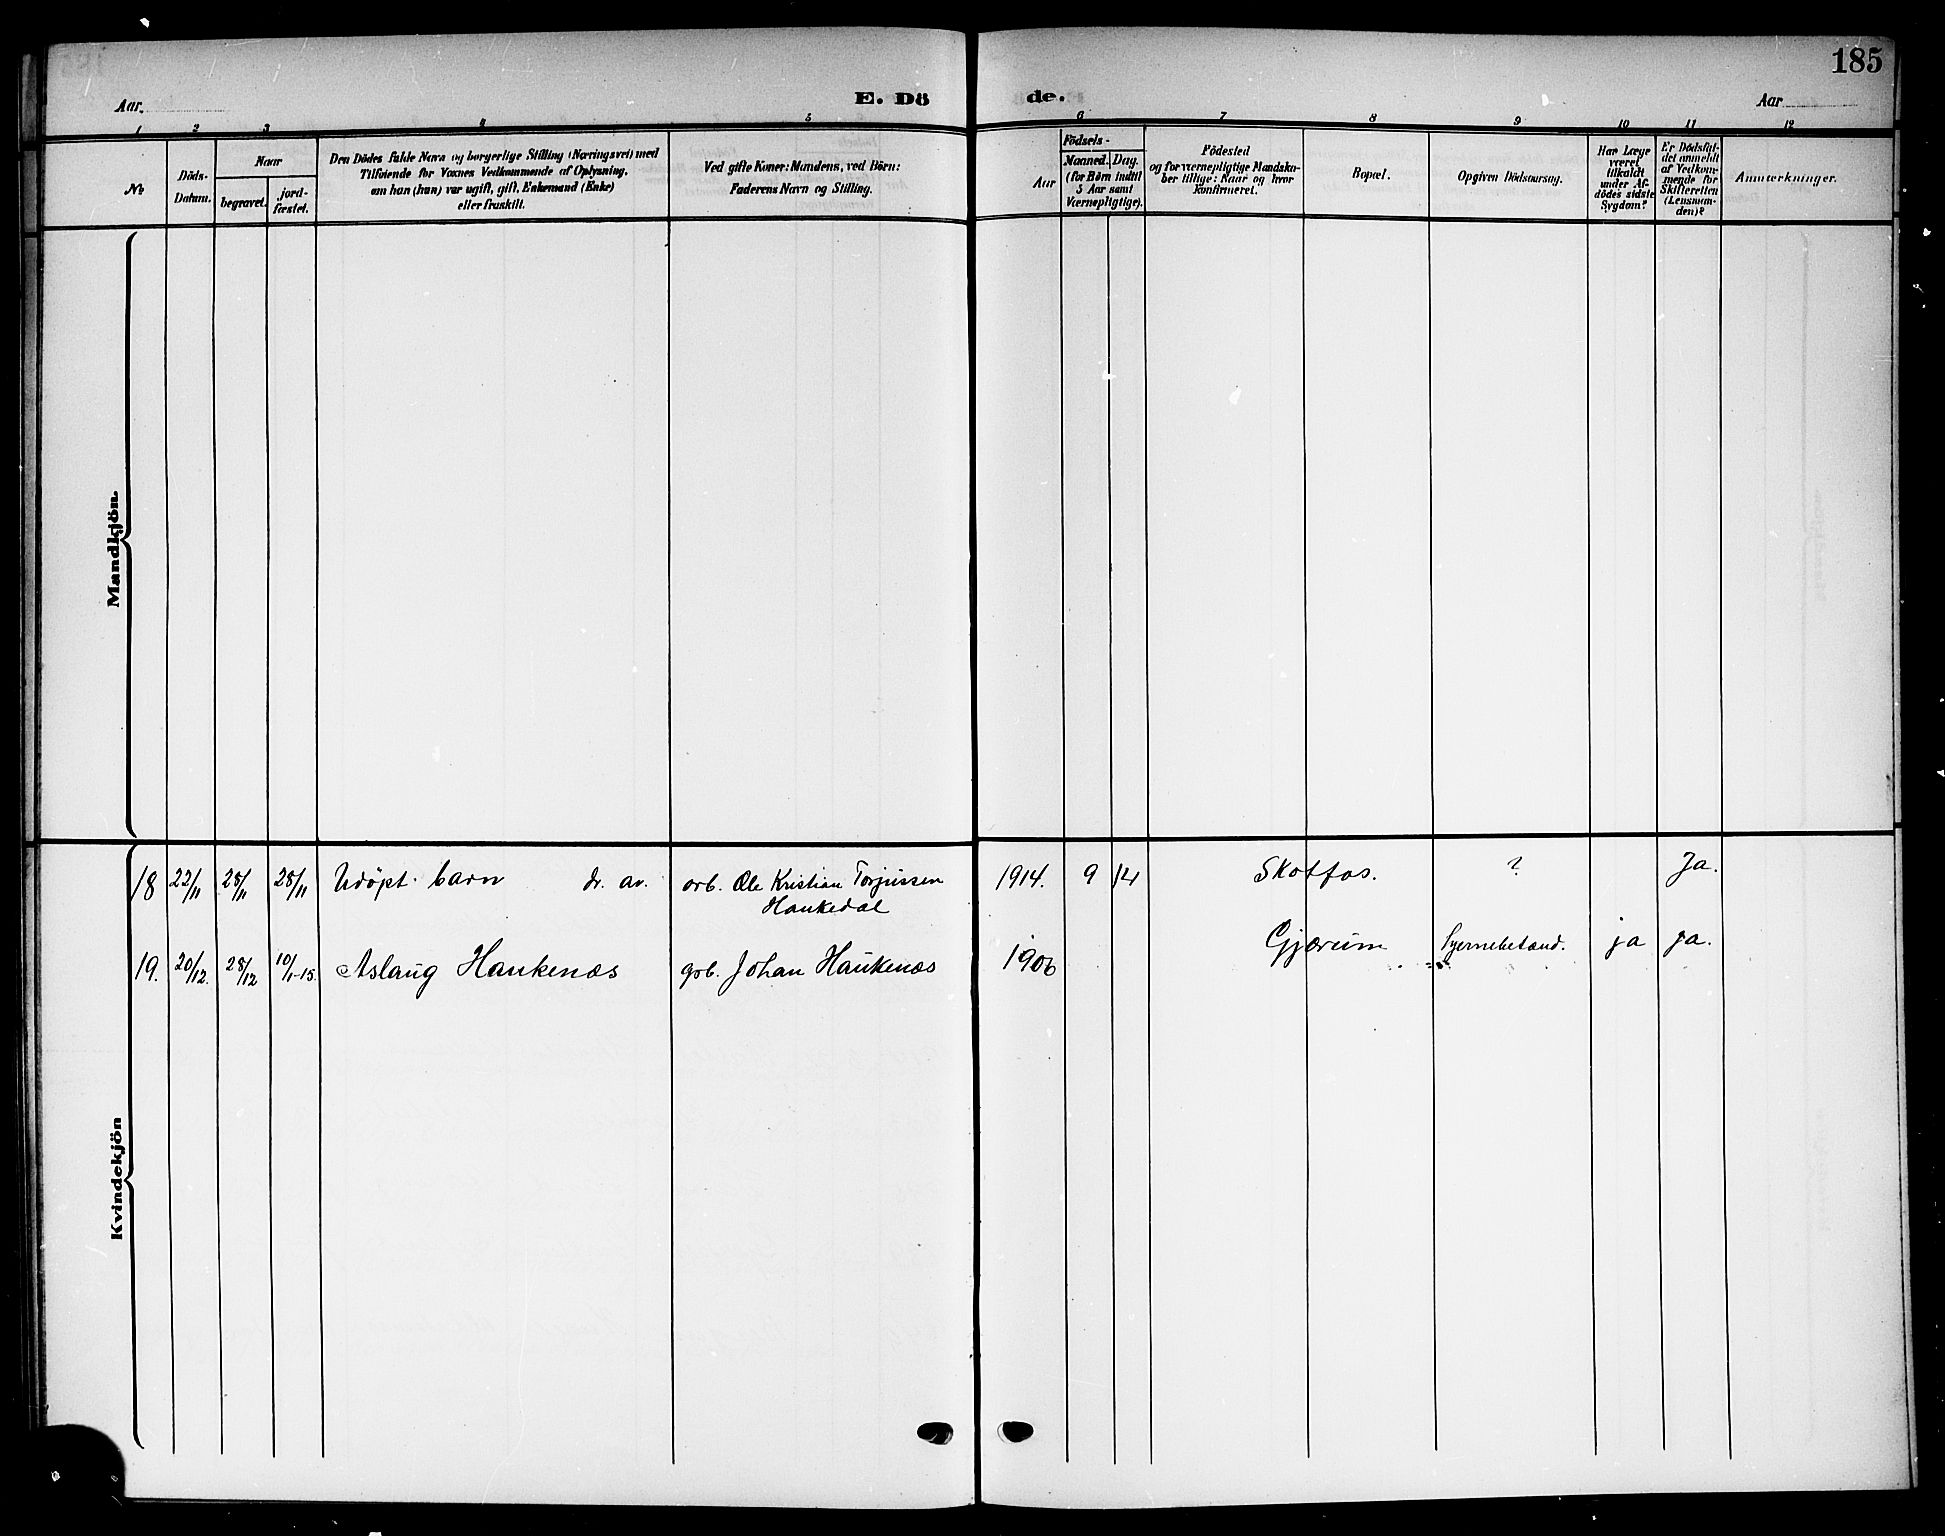 185
Aar
E. Dö
de.
Aar
1 2 3 4 5 6 7 8 9 10 11 12
No
Döds-
Datum.
Naar
begravet.
jord-
fæstet.
Den Dödes fulde Navn og borgerlige Stilling (Næringsvei) med
Tilföiende for Voxnes Vedkommende af Oplysning,
om han (hun) var ugift, gift, Enkemand (Enke)
eller fraskilt.
Ved gifte Koner: Mandens, ved Börn:
Faderens Navn og Stilling.
Födsels-
Aar
Maaned.
Dag.
(for Börn indtil
5 Aar samt
Værnepligtige).
Födested
og for værnepligtige Mandska-
ber tillige: Naar og hvor
konfirmeret.
Bopæl.
Opgiven Dödsaarsag.
Har Læge
været
tilkaldt
under Af-
dödes sidste
Sygdom?
Er Dödsfal-
det anmeldt
af Vedkom-
mende for
Skifteretten
(Lensman-
den)?
Anmærkninger.
Mandkjön.
Kvindekjön
18 22/11 28/11 28/11 Udöpt barn dr. av. arb. Ole Kristian Torjussen 1914. 9 14 Skotfos. ? Ja.
Haukedal
19. 20/12. 28/12 10/1-15. Aslaug Haukenæs grb. Johan Haukenæs 1906 Gjærum Hjernebetænd. ja ja.